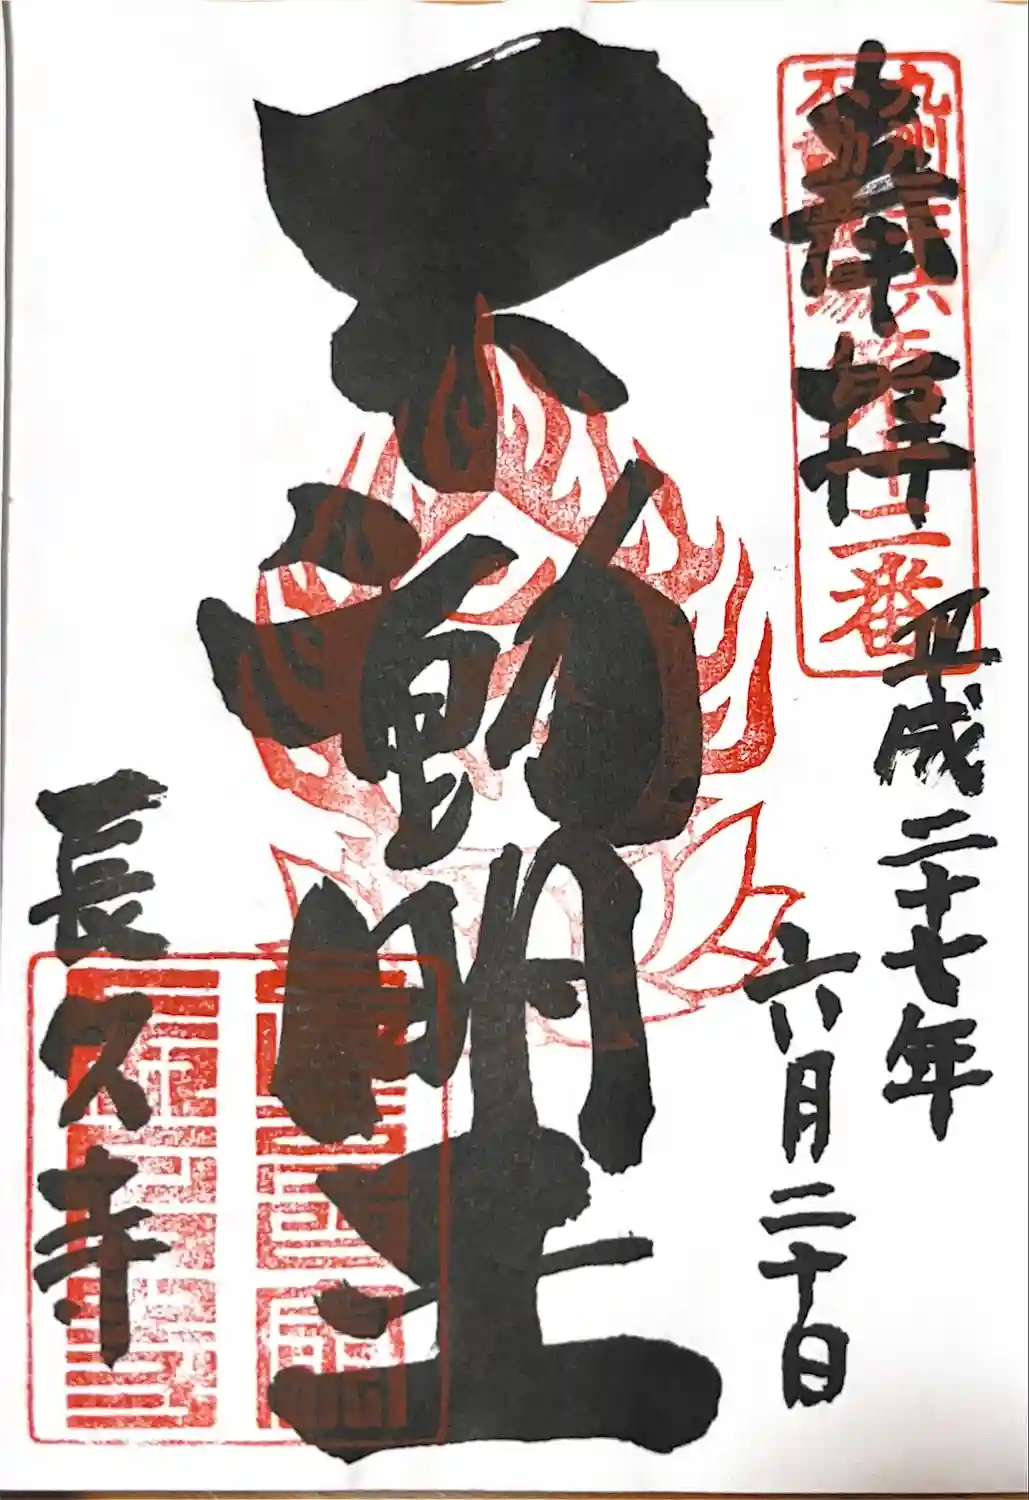 奉拝
九州
不動三十六
霊場第十二番
平成二十七年
六月二十日
不動明王
長久寺